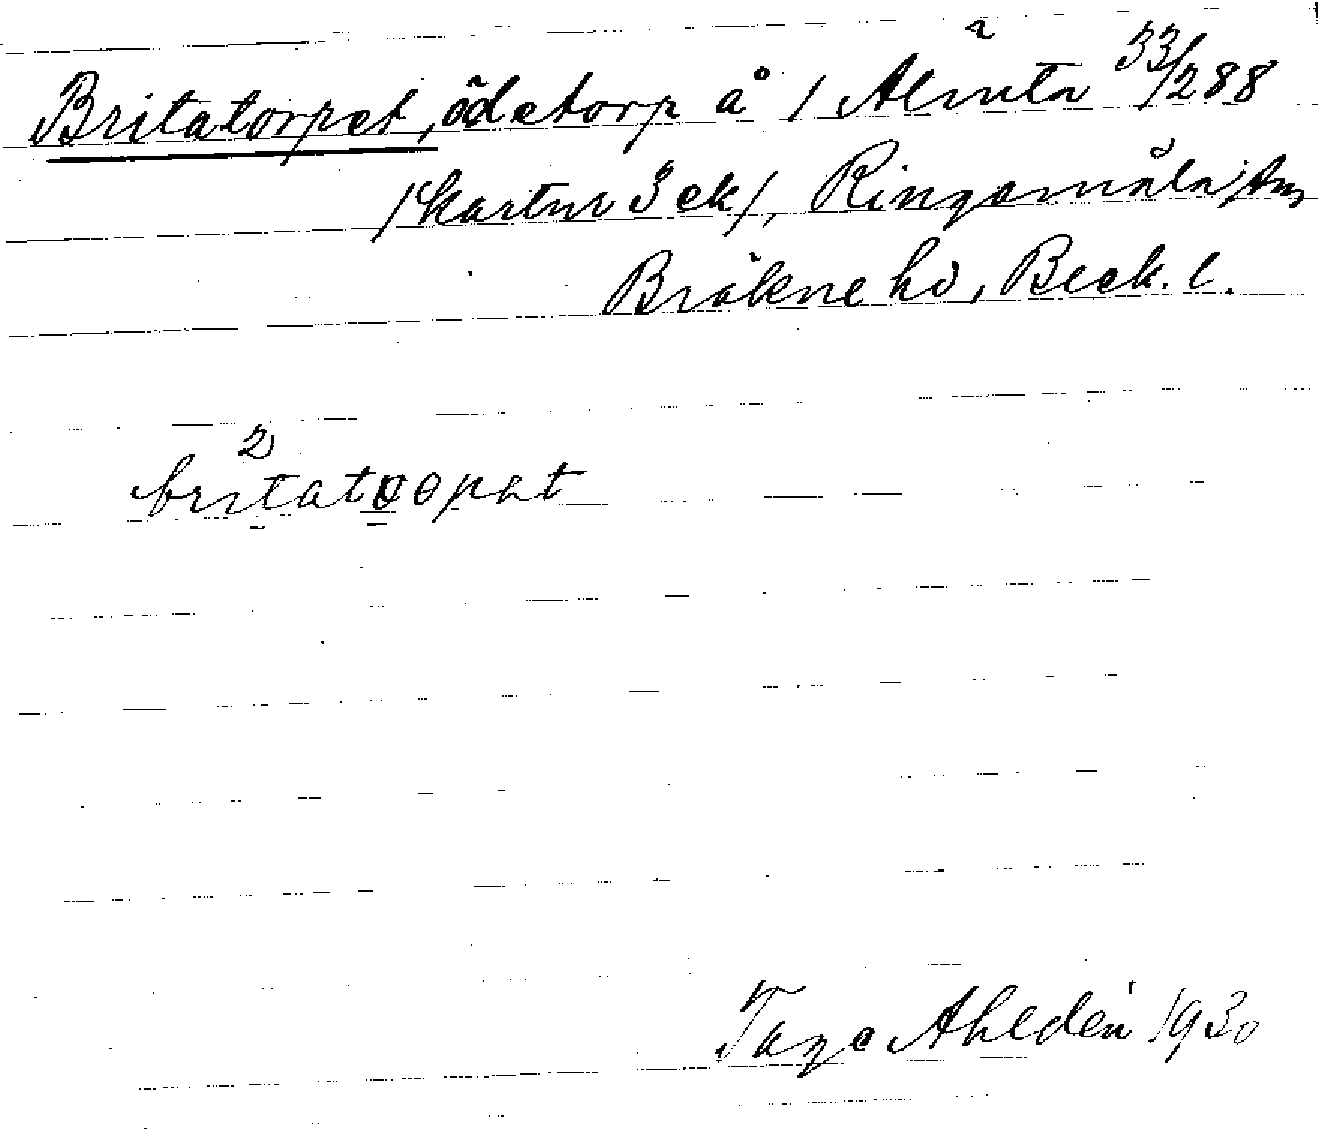 Britatorpet, ödetorp å 1 Älmta 33/288
/kartnr 3 ek/, Ringamåla sn,
Bräkne hd, Blek. l.
britatoopat
Tage Ahldén 1930